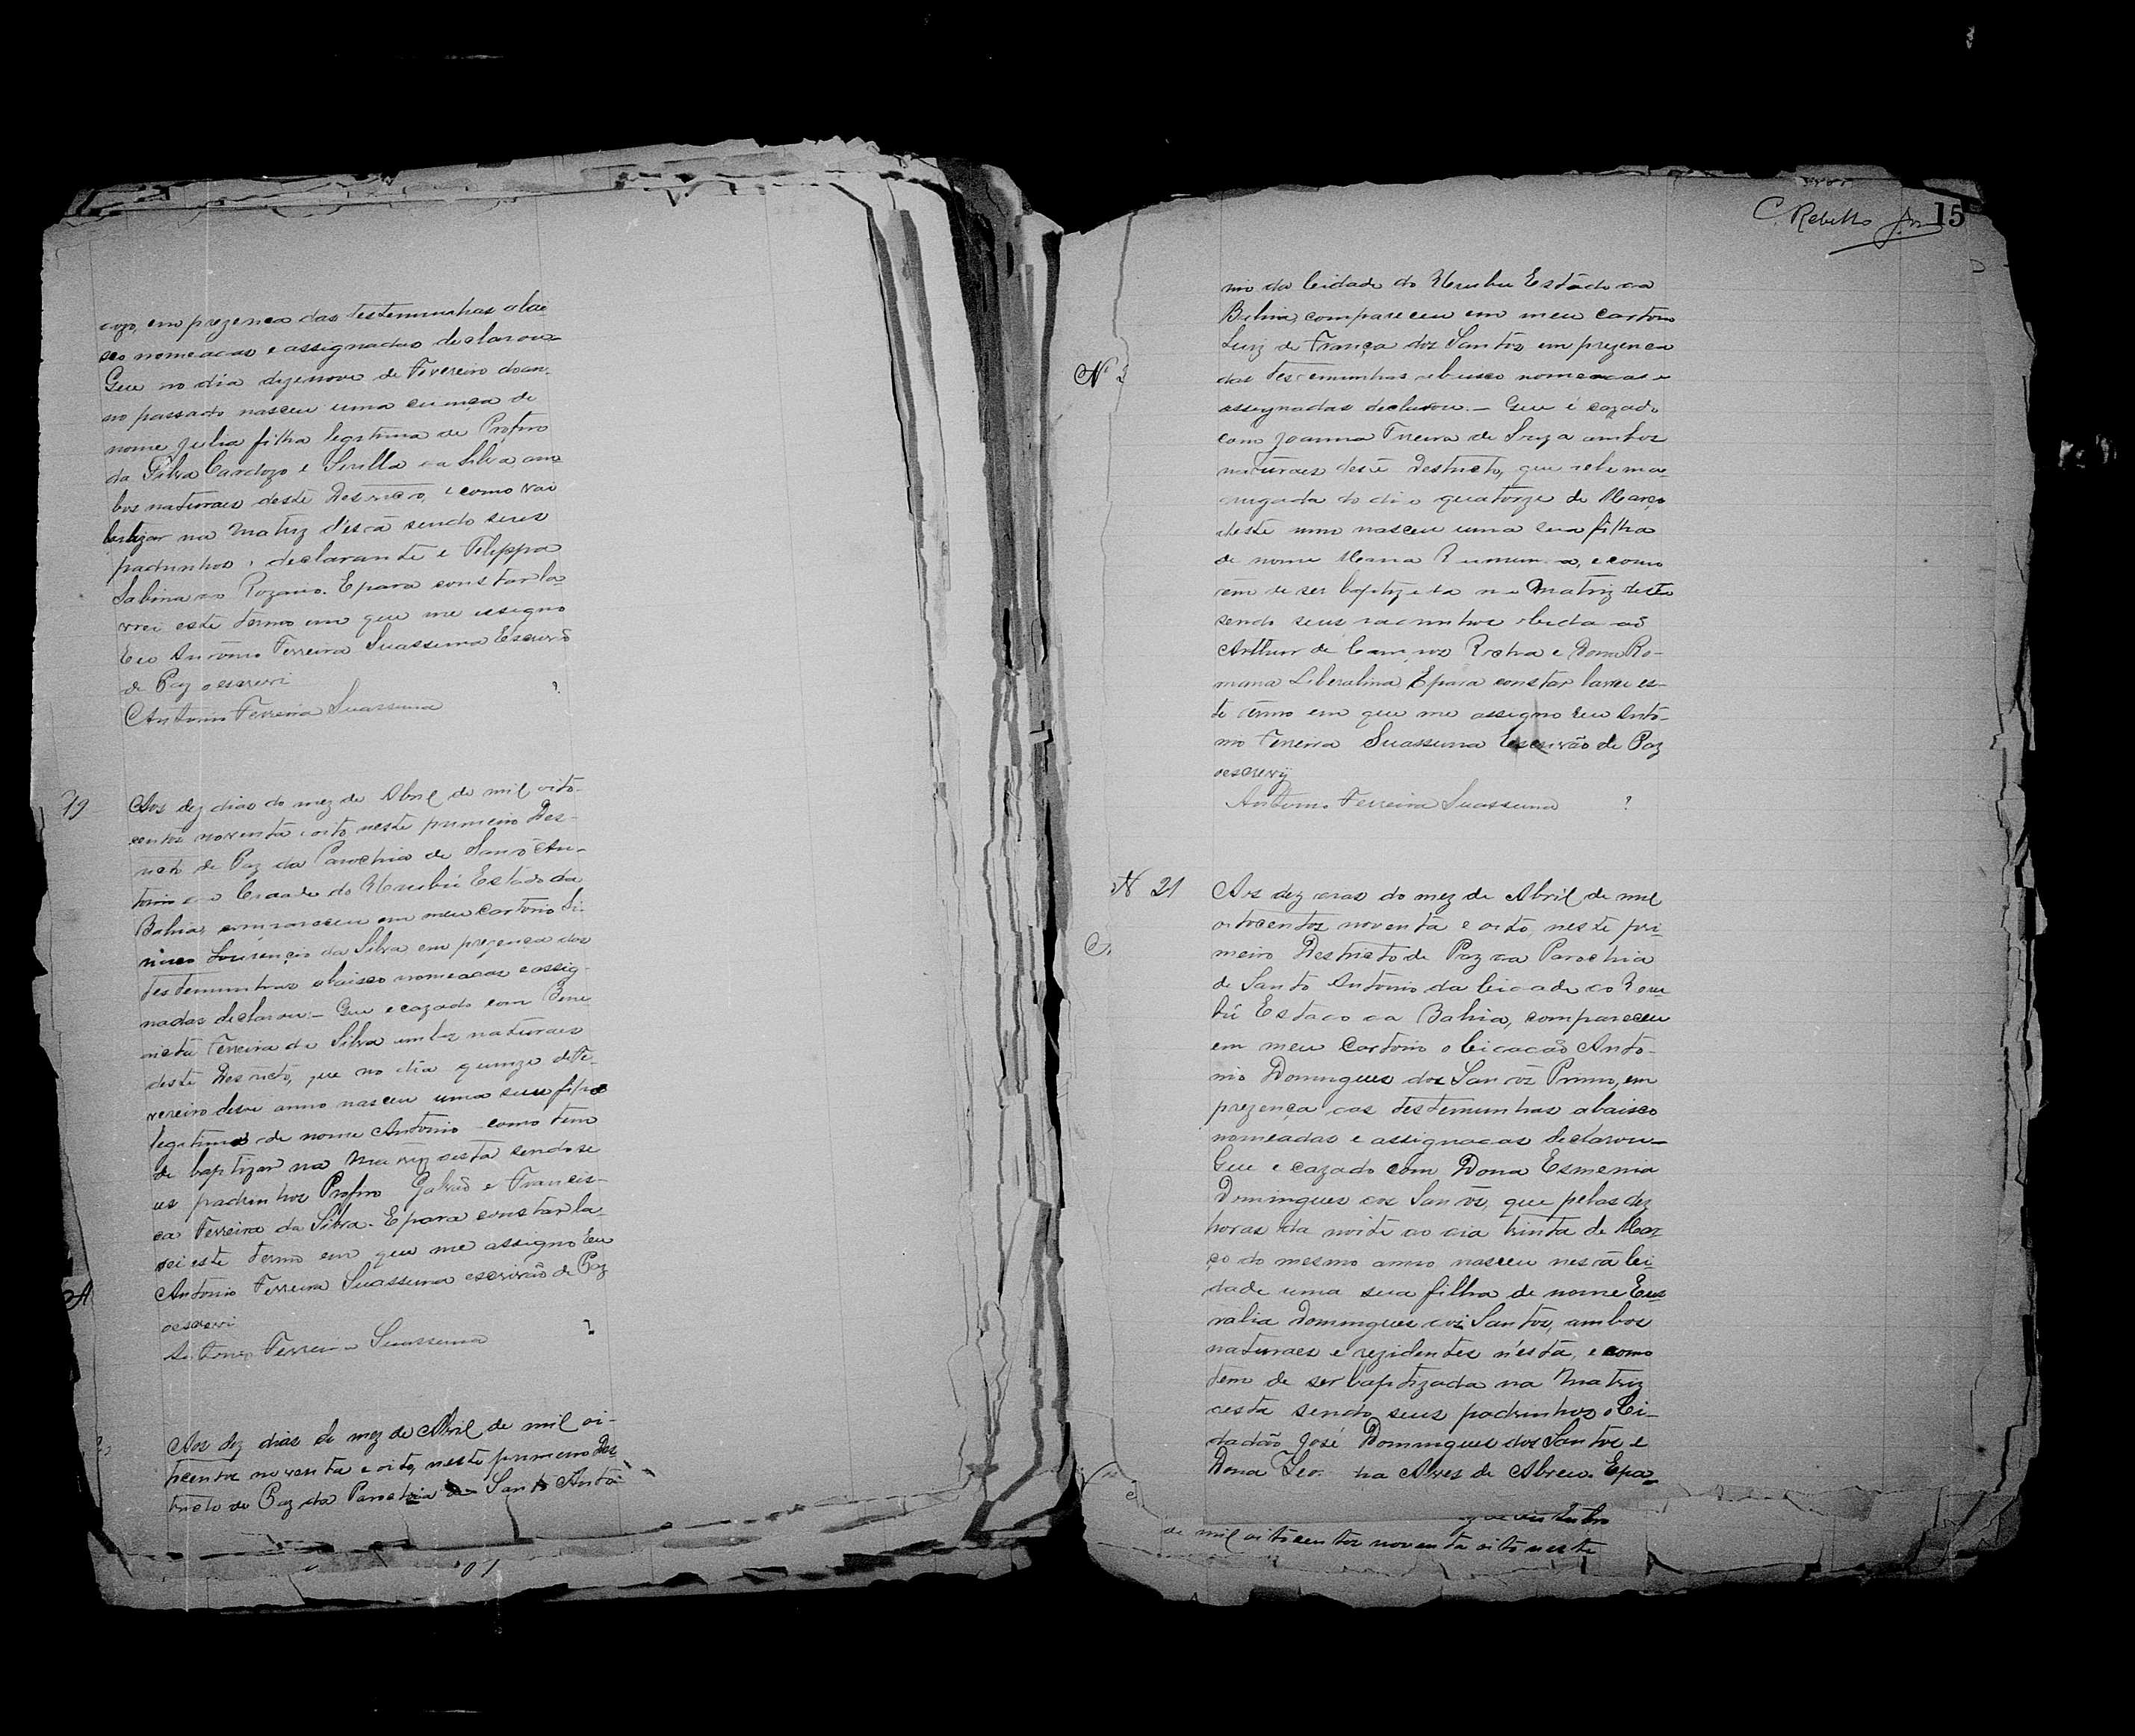 dozo, em prezenca das testemunhas abai
xo nomeadas e assignadas declarou-
Que no dia dezenove de Fevereiro do an-
no passado nasceu uma creança de
nome Julia filha legitima de Profiro
da Silva Cardozo e da Silva, am-
bos naturaes deste Destricto, e como vai
batizar na Matriz d'esta sendo seus
padrinhos o declarante e Felippa
Sabina do Rozario. E para constar la-
vrei este termo em que me assigno
Eu Antonio Ferreira Suassuna Escrivão
de Paz o escrevi
Antonio Ferreira Suassuna
19
Aos dez dias do mez de Abril de mil oito-
centos noventa e oito, neste primeiro Des-
tricto de Paz da Parochia de Santo An-
tonio da Cidade do Urubú Estado da
Bahia, compareceu em meu Cartorio
Lourenço da Silva em prezença das
testemunhas abaixo nomeadas e assig-
nadas declarou:- Que e cazado com Bene
nicta Ferreira da Silva ambos naturaes
deste Destricto, que no dia quinze de Fe-
vereiro deste anno nasceu uma seu filho
legitimo de nome Antonio como tem
de baptizar na Matriz desta sendo se
us padrinhos Profiro Galvão e Francis-
ca Ferreira da Silva. E para constar la-
vrei este termo em que me assigno Eu
Antonio Ferreira Suassuna escrivão de Paz
o escrevi
Antonio Ferreira Suassuna
Aos dez dias do mez de Abril de mil oi-
tocentos noventa e oito, neste primeiro Des
tricto de Paz da Parochia de Santo Anto
C Rebello Jor 15
nio da Cidade do Urubu Estado da
Bahia, compareceu em meu cartorio
Luiz de França dos Santos em prezenca
das testemunhas abaixo nomeadas e
assignadas declarou.- Que é cazado
com Joanna Ferreira de Souza ambos
naturaes deste Destricto, que pela ma-
drugada do dia quatorze de Março
deste anno nasceu uma sua filha
de nome Maria e como
tem de ser baptizada na Matriz desta
sendo seus padrinhos o cidadão
Arthur de Campos Rocha e Dona Ro-
mana Liberalina E para constar lavrei es-
te termo em que me assigno Eu Anto-
nio Ferreira Suassuna Escrivão de Paz
o escrevy
Antonio Ferreira Suassuna
N 21
Aos dez dias do mez de Abril de mil
oitocentos noventa e oito, neste pri-
meiro Destricto de Paz da Parochia
de Santo Antonio da Cidade do Uru-
bú Estado da Bahia, compareceu
em meu Cartorio o Cidadão Anto-
nio Domingues dos Santos Primo, em
prezença das testemunhas abaixo
nomeadas e assignadas declarou-
Que é cazado com Dona Esmenia
Domingues dos Santos, que pelas dez
horas da noite do dia trinta de Mar
ço do mesmo anno nasceu nesta Ci-
dade uma sua filha de nome Eus
valia Domingues dos Santos, ambos
naturaes e rezidentes n'esta, e como
tem de ser baptizada na Matriz
desta sendo seus padrinhos o Ci-
dadão José Domingues dos Santos e
Dona Alves de Abreu. E pa-
de mil oitocentos noventa oito neste